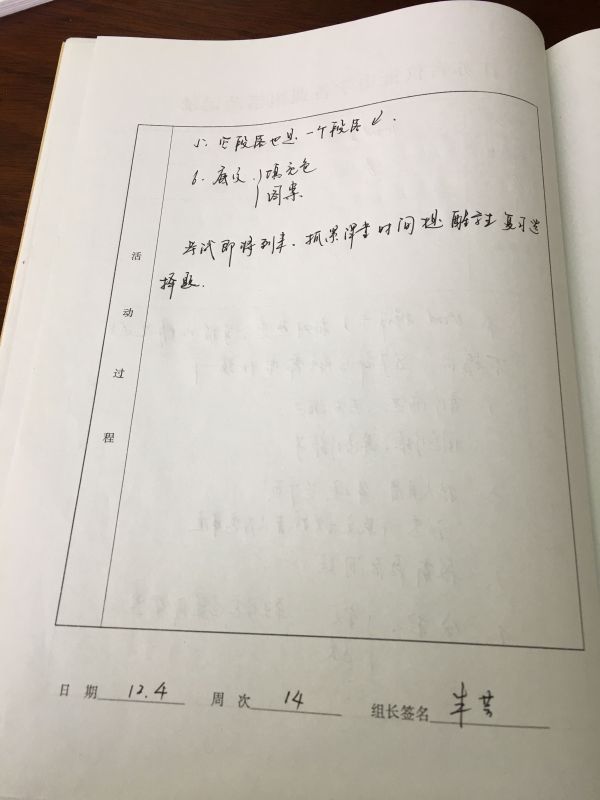 5. 空段落也是一个段落。
6. 底纹 填充色
图案
考试即将到来、抓紧课堂时间 提醒学生复习选
择题.
活动过程
日期 12.4 周次 14 组长签名